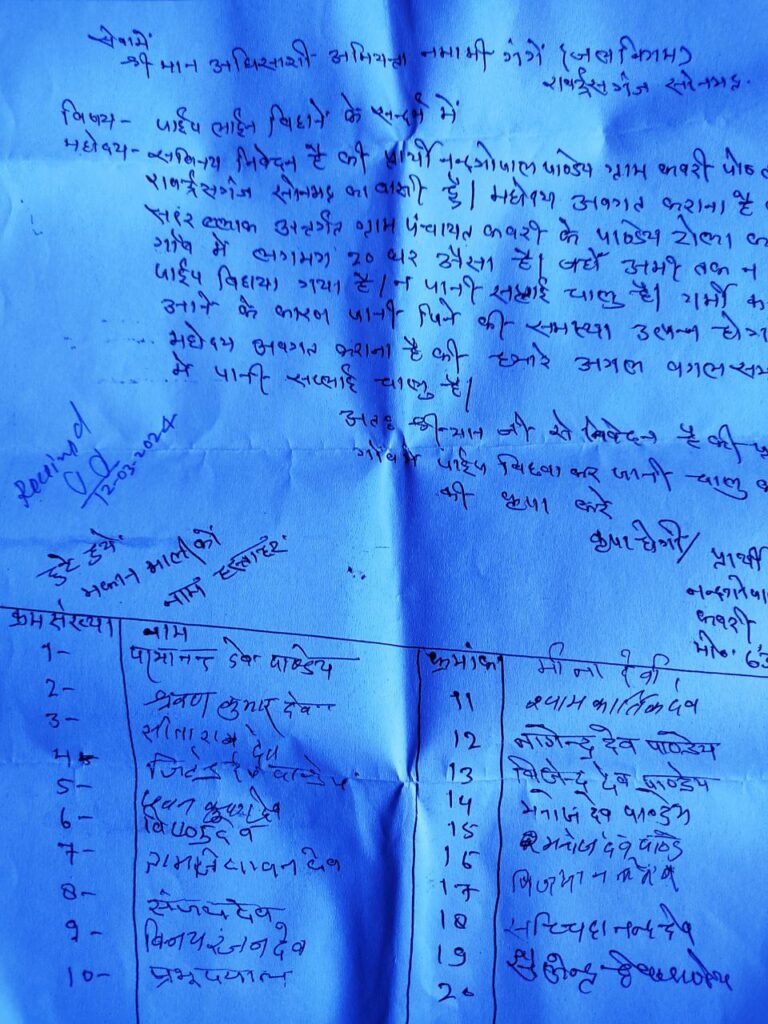 सेवामें
श्री मान अधिसाशी अभियन्ता नमामी गंगे (जलनिगम)
राबर्ट्सगंज सोनभद्र.
विषय- पाईप लाईन विछाने के सन्दर्भ में
महोदय- सविनय निवेदन है की प्रार्थी नन्दगोपाल पाण्डेय ग्राम कवरी पोस्ट
राबर्ट्सगंज सोनभद्र का वासी है। महोदय अवगत कराना है
सदर ब्लाक अन्तर्गत ग्राम पंचायत कवरी के पाण्डेय टोला
गाँव में लगभग 20 घर ऐसा है। जहाँ अभी तक न
पाईप विछाया गया है। न पानी सप्लाई चालु है। गर्मी
आने के कारण पानी पिने की समस्या उत्पन्न होगा
महोदय अवगत कराना है की हमारे अगल वगल
में पानी सप्लाई चालु है।
अतः श्रीमान जी से निवेदन है की
गाँव में पाईप विछवा कर पानी चालु
की कृपा करे
कृपा होगी/
Received
12-03-2024
छुटे हुये
मकान मालीको
नाम हस्ताक्षर
प्रार्थी
कवरी
मो०
क्रम संख्या नाम क्रमांक मीना देवी
1- देव पाण्डेय
2- श्रवण कुमार देव 11 श्याम कार्तिक देव
3- सीताराम देव
4- देव पाण्डेय 12 नागेन्द्र देव पाण्डेय
5- देव 13 विजेन्द्र देव पाण्डेय
6- देव 14 मनोज देव पाण्डेय
7- देव 15 देव पाण्डे
16
8- संजय देव 17
9- विनय रंजन देव 18 सच्चिदानन्द देव
10- प्रभूदयाल 19
20